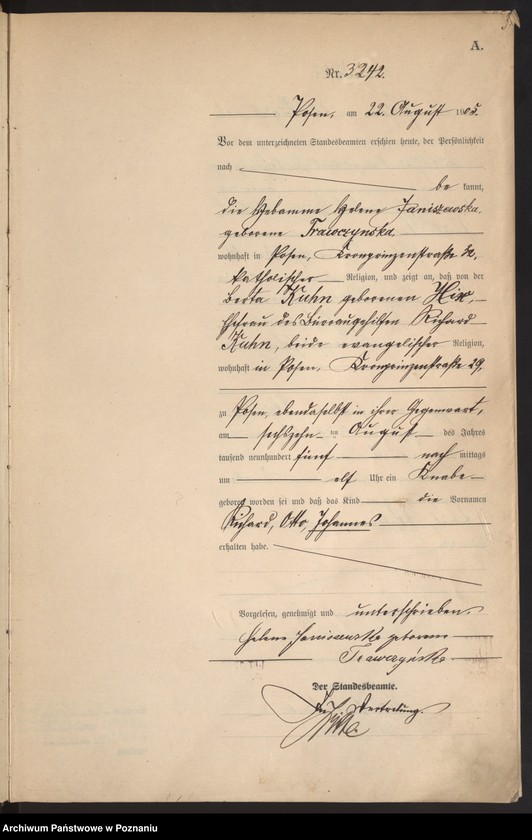 A.
Nr. 3242.
Posen, am 22. August 1905.
Vor dem unterzeichneten Standesbeamten erschien heute, der Persönlichkeit
nach
be kannt,
die Hebamme Helene Janiszewska,
geborene Trawczynska
wohnhaft in Posen, Kronprinzenstraße
katholischer Religion, und zeigt an, daß von der
Berta Kuhn geborenen Hix,
Ehefrau des Bürogehilfen Richard
Kuhn, beide evangelischer Religion,
wohnhaft in Posen, Kronprinzenstraße 29,
zu Posen, ebendaselbst in ihrer Gegenwart,
am sechszehn ten August des Jahres
tausend neunhundert fünf nach mittags
um elf Uhr ein Knabe
geboren worden sei und daß das Kind die Vornamen
Richard, Otto, Johannes
erhalten habe.
Vorgelesen, genehmigt und unterschrieben.
Helene Janiszewska geborene
Trawczyńska
Der Standesbeamte.
In Vertretung.
Archiwum Państwowe w Poznaniu